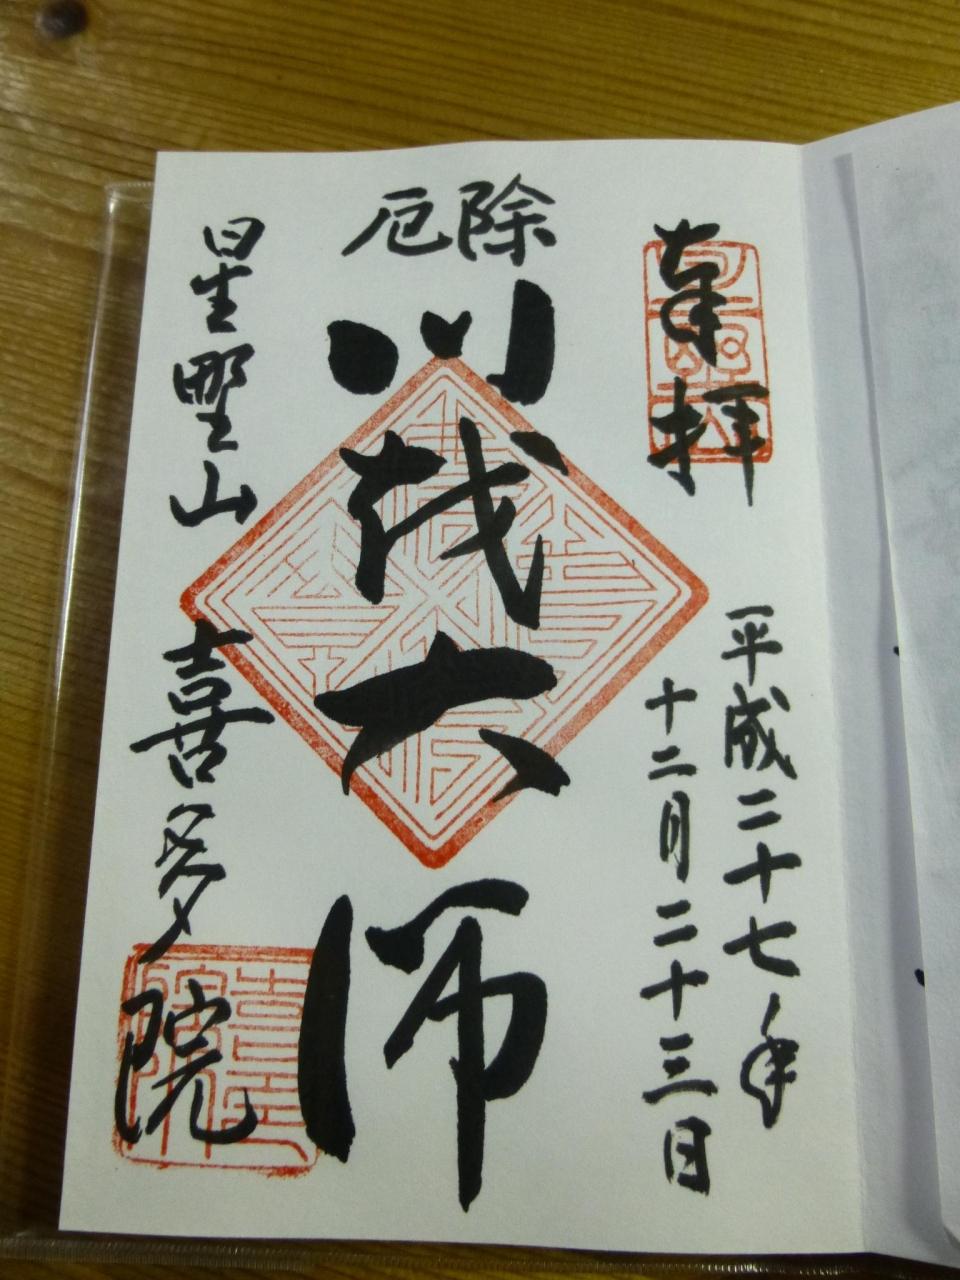 奉拝
平成二十七年
十二月二十三日
厄除
川越大師
星野山 喜多院